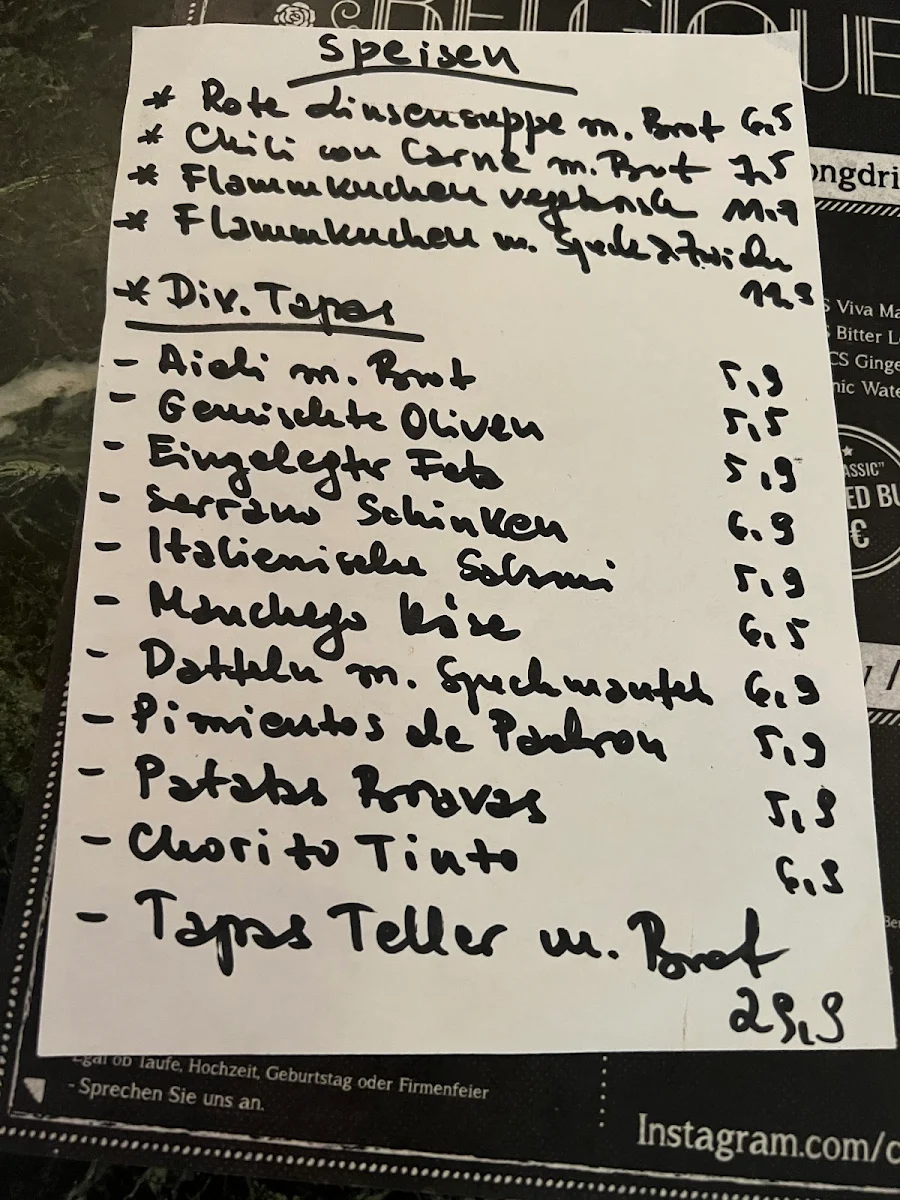 BELGIQUE
Speisen
* Rote Linsensuppe m. Brot 6,5
* Chili con Carne m. Brot 7,5
* Flammkuchen vegetarisch 11,9
* Flammkuchen m. Speck & Zwiebeln
11,9
* Div. Tapas
- Aioli m. Brot 5,9
- Gemischte Oliven 5,5
- Eingelegter Feta 5,9
- Serrano Schinken 6,9
- Italienische Salami 5,9
- Manchego Käse 6,5
- Datteln m. Speckmantel 6,9
- Pimientos de Padron 5,9
- Patatas Bravas 5,9
- Chorito Tinto 6,9
- Tapas Teller m. Brot
29,9
ongdri
S Viva Ma
Bitter L
CS Ginge
nic Wate
ASSIC"
ED BU
€
Egal ob Taufe, Hochzeit, Geburtstag oder Firmenfeier
- Sprechen Sie uns an.
Instagram.com/c